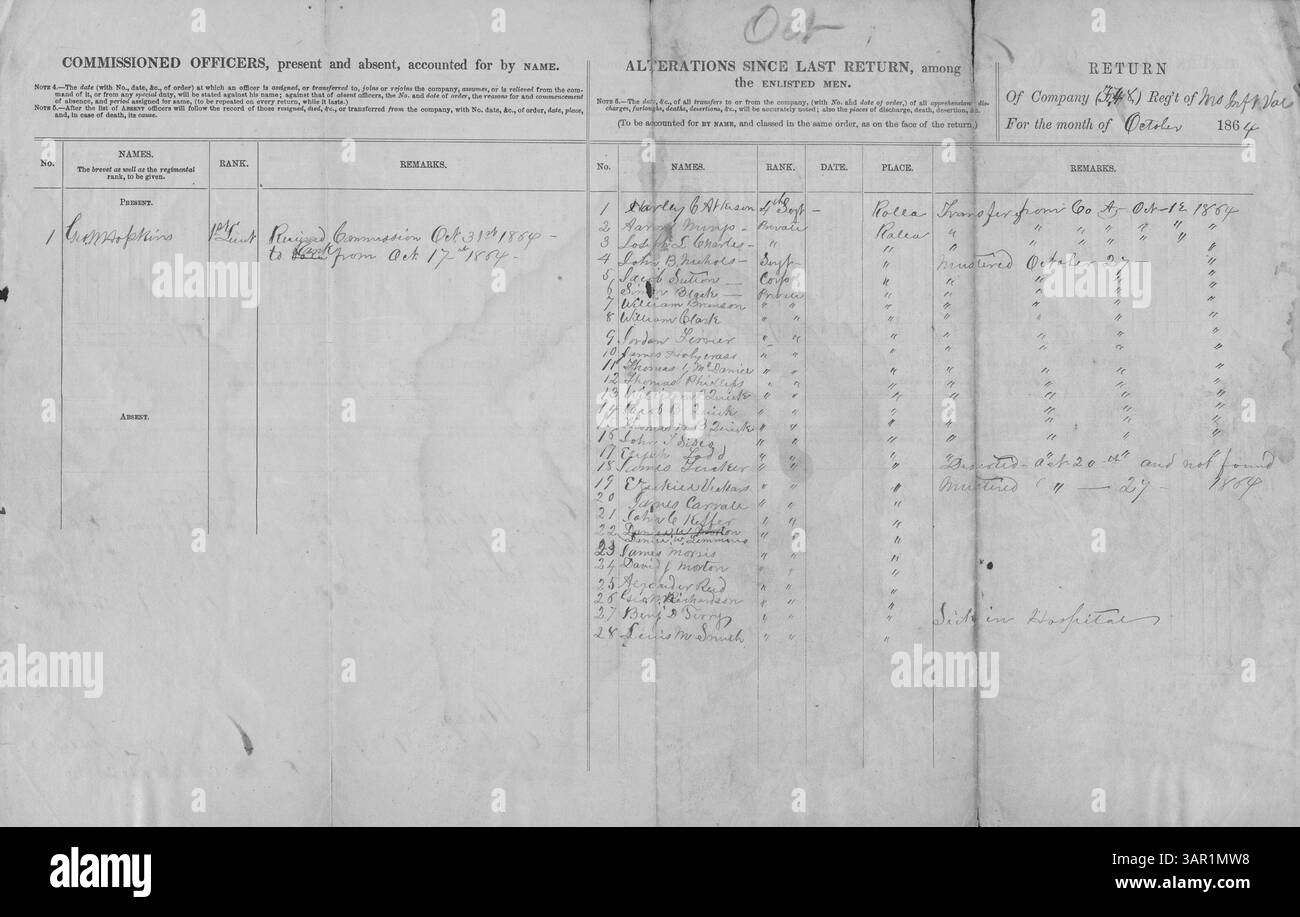 Oct
COMMISSIONED OFFICERS, present and absent, accounted for by NAME.
NOTE 4.—The date (with No., date, &c., of order) at which an officer is assigned, or transferred to, joins or rejoins the company, assumes, or is relieved from the com-
mand of it, or from any special duty, will be stated against his name; against that of absent officers, the No. and date of order, the reasons for and commencement
of absence, and period assigned for same, (to be repeated on every return, while it lasts.)
NOTE 5.—After the list of ABSENT officers will follow the record of those resigned, died, &c., or transferred from the company, with No. date, &c., of order, date, place,
and, in case of death, its cause.
No.
NAMES.
The brevet as well as the regimental
rank, to be given.
RANK.
REMARKS.
PRESENT.
1 Geo M Hopkins 1st Lieut Received Commission Oct 31st 1864 -
to rank from Oct 17th 1864 -
ABSENT.
ALTERATIONS SINCE LAST RETURN, among
the ENLISTED MEN.
NOTE 6.—The date, &c., of all transfers to or from the company, (with No. and date of order,) of all apprehensions, dis-
charges, furloughs, deaths, desertions, &c., will be accurately noted; also the places of discharge, death, desertion, &c.
(To be accounted for BY NAME, and classed in the same order, as on the face of the return.)
RETURN
Of Company (F, 48) Reg't of Mo Inft Vol
For the month of October 1864
No. NAMES. RANK. DATE. PLACE. REMARKS.
1 Harley C Atkison 4th Sergt - Rolla Transfer from Co A - Oct - 12 1864
2 Aaron Mimps - Private Rolla " " " " "
3 Joseph L Charles - " " " " " "
4 John B Nichols - Sergt " Mustered October 27 -
5 Jacob Sutton Corp " " " " "
6 Simon Black Private " " " " "
7 William Branson " " " " " " "
8 William Clark " " " " " " "
9 Jordan Ferrier " " " " " " "
10 James Holycross " "
11 Thomas J McDaniel " "
12 Thomas Phillips " "
13 Quick " "
14 Jacob B Quick " "
Thomas B Quick " "
16 John T Sisco " "
17 Elijah Todd " "
18 James Tucker " " " Deserted - Oct 20th and not found
19 Ezekiel Vickars " " " Mustered " " - 27 - 1864
20 James Carrall " " "
21 John C Keffer " " "
22 " " "
23 James Morris " " "
24 David J Morton " " "
25 Alexander Reed " " "
26 Richardson " " "
27 Benj D Terry " " " Sick in Hospital
28 Lewis M Smith " " "
alamy
Image ID: 3AR1MW8
www.alamy.com